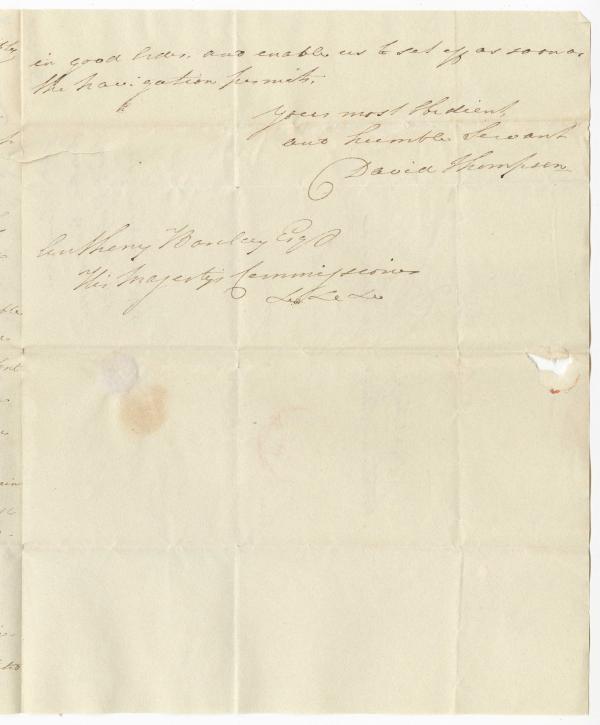 in good Order. and enable us to set off as soon as
the navigation permits.
Your most Obedient,
and humble Servant
David Thompson
Anthony Barclay Esqr
His Majestys Commissioner
&c &c &c